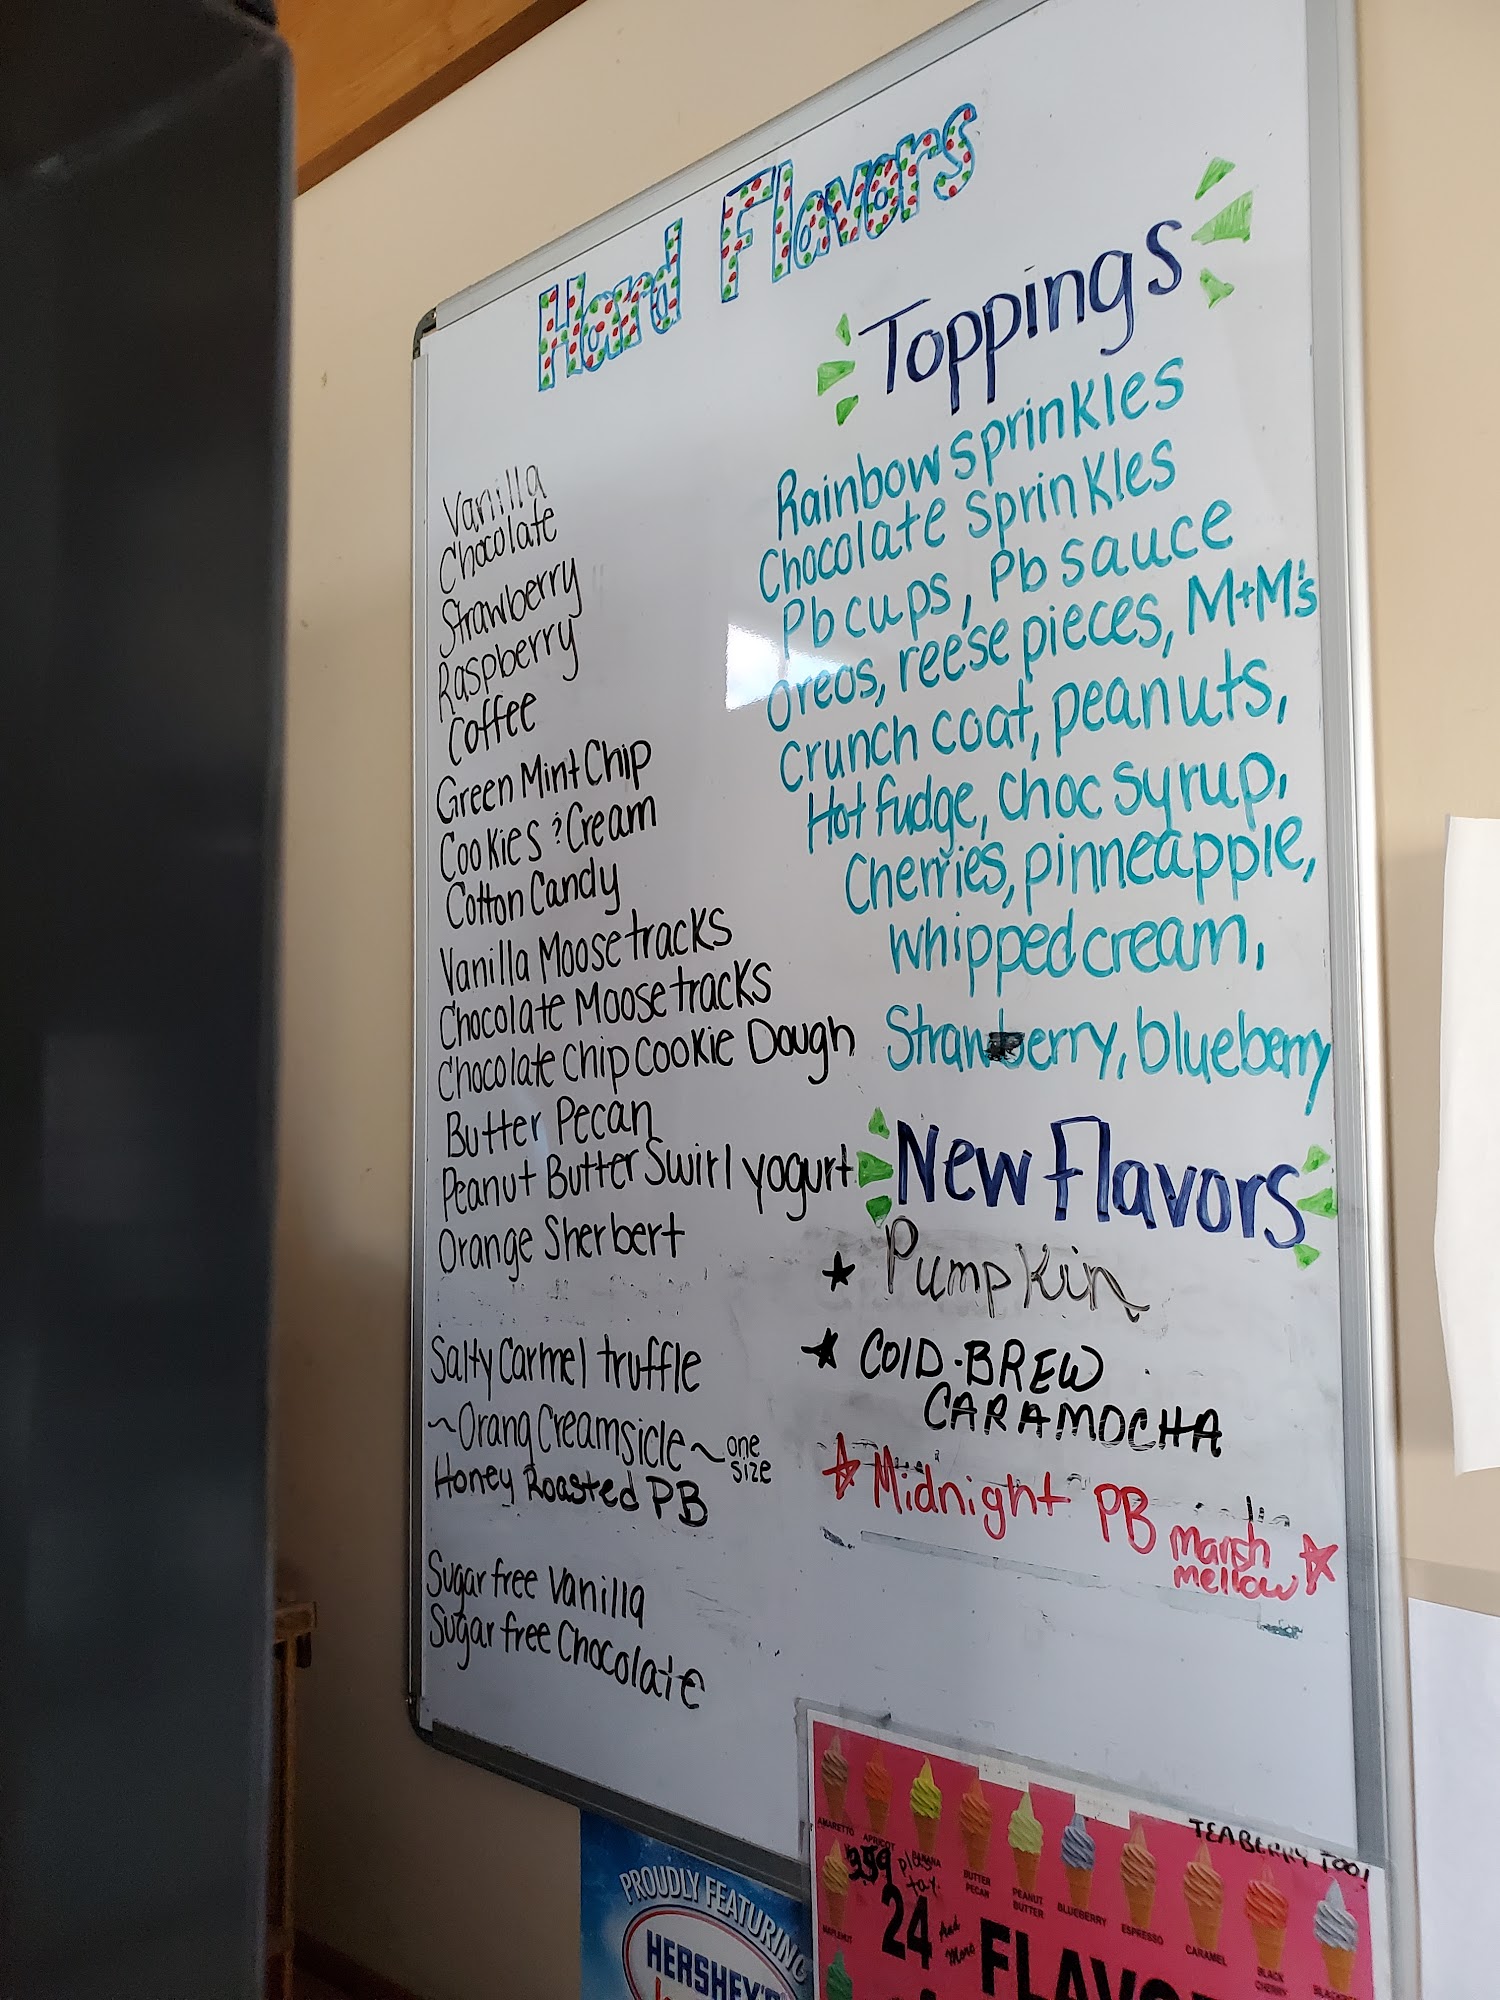 Hard Flavors
Vanilla
Chocolate
Strawberry
Raspberry
Coffee
Green Mint Chip
Cookies & Cream
Cotton Candy
Vanilla Moosetracks
Chocolate Moosetracks
Chocolate Chip Cookie Dough
Butter Pecan
Peanut Butter Swirl yogurt
Orange Sherbert
Salty Carmel truffle
~Orang Creamsicle~ one size
Honey Roasted PB
Sugar free Vanilla
Sugar free Chocolate
Toppings
Rainbow sprinkles
Chocolate sprinkles
Pb cups, Pb sauce
oreos, reese pieces, M+M's
crunch coat, peanuts,
Hot fudge, choc syrup,
Cherries, pinneapple,
whipped cream,
Strawberry, blueberry
New Flavors
★ Pumpkin
★ COLD-BREW
CARAMOCHA
☆ Midnight PB marsh mellow ☆
PROUDLY FEATURING
HERSHEY'S
TEABERRY TOO!
AMARETTO
APRICOT
BANANA
BUTTER PECAN
PEANUT BUTTER
BLUEBERRY
ESPRESSO
CARAMEL
BLACK CHERRY
plus tax.
24 And More
FLAVO